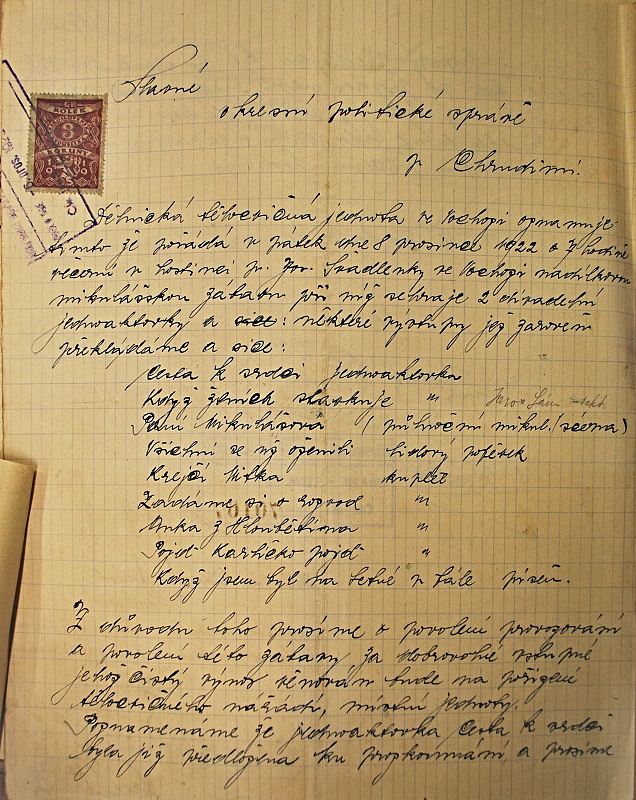 Slavné
okresní politické správě
v Chrudimi.
KOLEK
3
KORUNY
Dělnická tělocvičná jednota ve Vochozi oznamuje
tímto že pořádá v pátek dne 8 prosince 1922 o 7 hodině
večerní v hostinci p. Jos. Švadlenky ve Vochozi nadílkovou
mikulášskou zábavu při níž sehraje 2 divadelní
jednoaktovky a sice: některé výstupy jež zároveň
překládáme a sice:
Cesta k srdci jednoaktovka
Když ženich slaskuje "
Paní Mikulášová (půlnoční mikul. scéna)
Všichni se už oženili lidový popěvek
Krejčí Mitka kuplet
Žádáme si o rozvod "
Anka z Hloubětína "
Pojď Karličko pojď "
Když jsem byl na Letné v tále píseň.
70107
Z důvodu toho prosíme o povolení provozování
a povolení této zábavy za dobrovolné vstupné
jehož čistý výnos věnován bude na pořízení
tělocvičného nářadí, místní jednoty.
Poznamenáme že jednoaktovka Cesta k srdci
byla již předložena ku prozkoumání, a prosíme